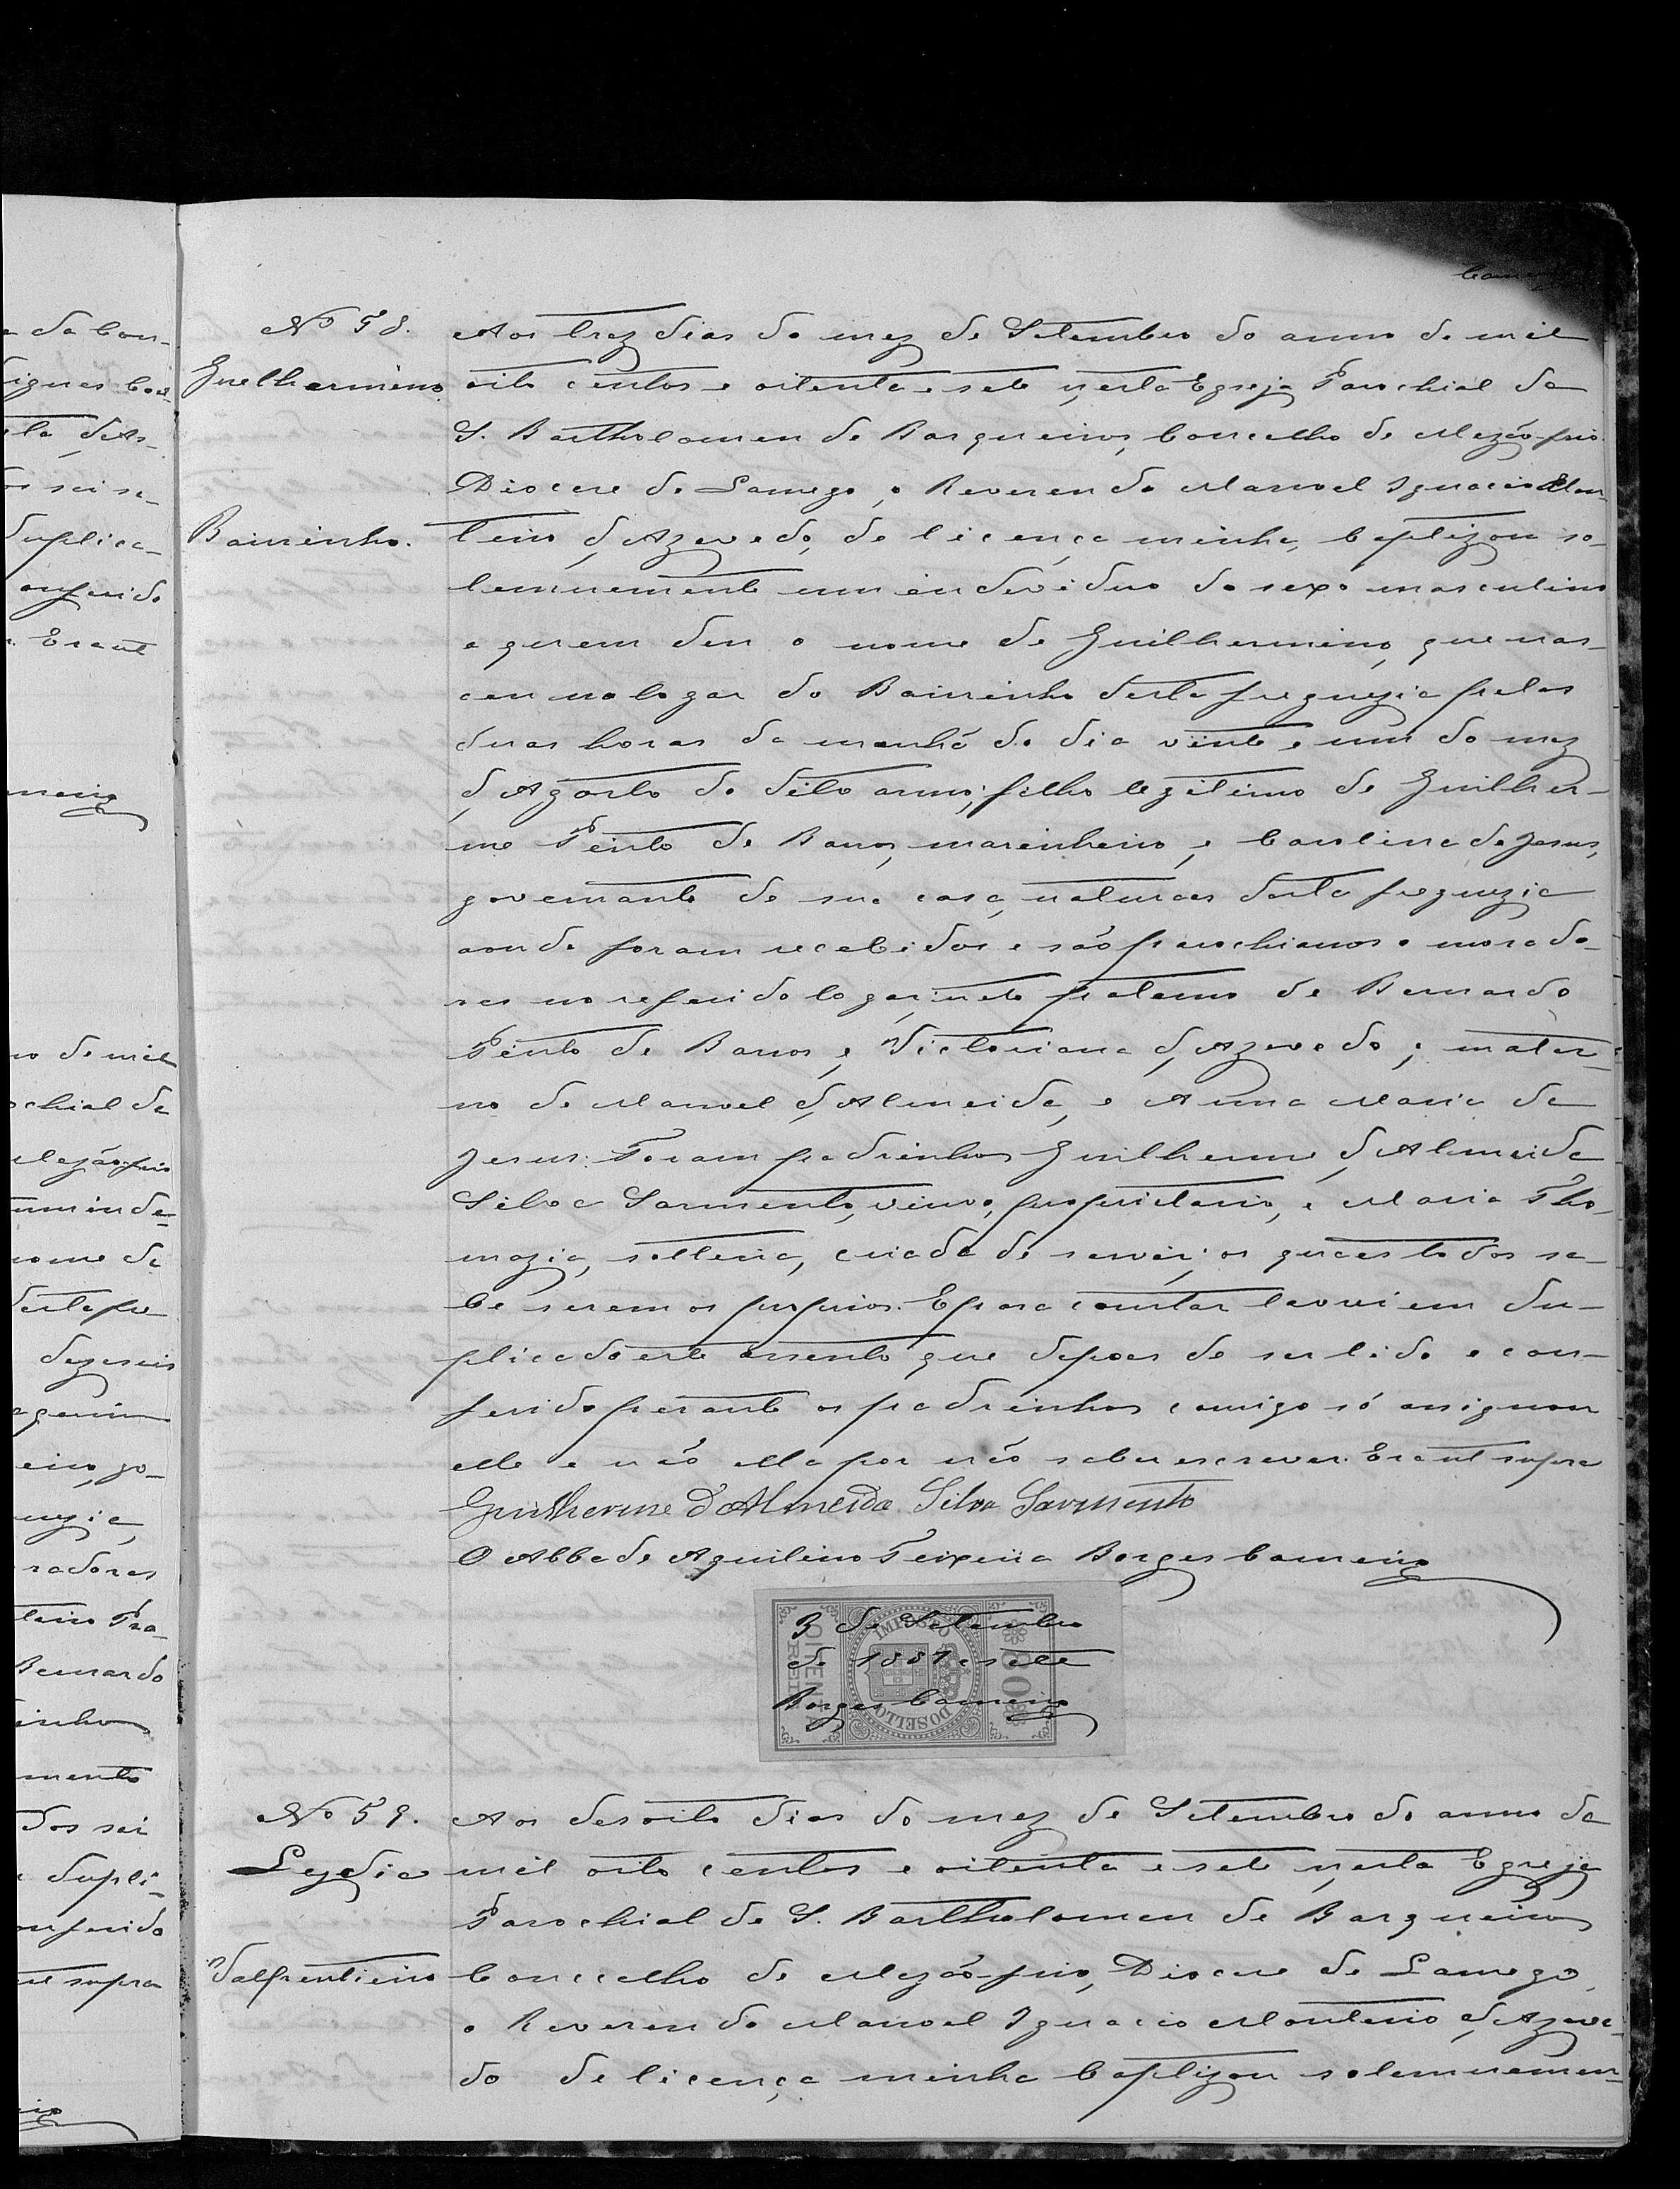 Nº 58.
Guelhermino.
Bairrinho.
Aos trez dias do mez de Setembro do anno de mil
oito centos e oitenta e sete n'esta Egreja Parochial de
S. Bartholomeu de Barqueiros, Concelho de Mezão-frio
Diocese de Lamego, o Reverendo Manoel Ignacio Mon-
teiro d'Azevedo, de licença minha, baptizou so-
lemnemente um individuo do sexo masculino
a quem deu o nome de Guilhermino, que nas-
ceu no logar do Bairrinho desta freguezia pelas
duas horas da manhã do dia vinte e um do mez
d'Agosto do dito anno; filho legitimo de Guilher-
me Pinto de Barros, marinheiro, e Carolina de Jesus,
governante de sua casa, naturaes desta freguezia
aonde foram recebidos e são parochianos e morado-
res no referido logar; neto paterno de Bernardo
Pinto de Barros, e Victoriana d'Azevedo, e mater-
no de Manoel d'Almeida, e Anna Maria de
Jesus. Foram padrinhos Guilherme d'Almeida
Silva Sarmento, viuvo, proprietario, e Maria Tho-
mazia, solteira, criada de servir; os quaes todos sa-
be serem os proprios. E para constar lavrei em du-
plicado este assento, que depoes de ser lido e con-
ferido perante os padrinhos comigo só assignou
elle e não ella por não saber escrever. Era ut supra
Guilherme d'Almeida Silva Sarmento
O Abbade Aquilino Teixeira Borges Carneiro
3 de Setembro
de 1887 e sete
Borges Carneiro
IMPOSTO DO SELLO
OITENTA
REIS
80
Nº 59.
Lydia
Valfrentieiro
Aos desoito dias do mez de Setembro do anno de
mil oito centos e oitenta e sete n'esta Egreja
Parochial de S. Bartholomeu de Barqueiros
Concelho de Mezão-frio, Diocese de Lamego,
o Reverendo Manoel Ignacio Monteiro d'Azeve-
do de licença minha baptizou solemnemen-